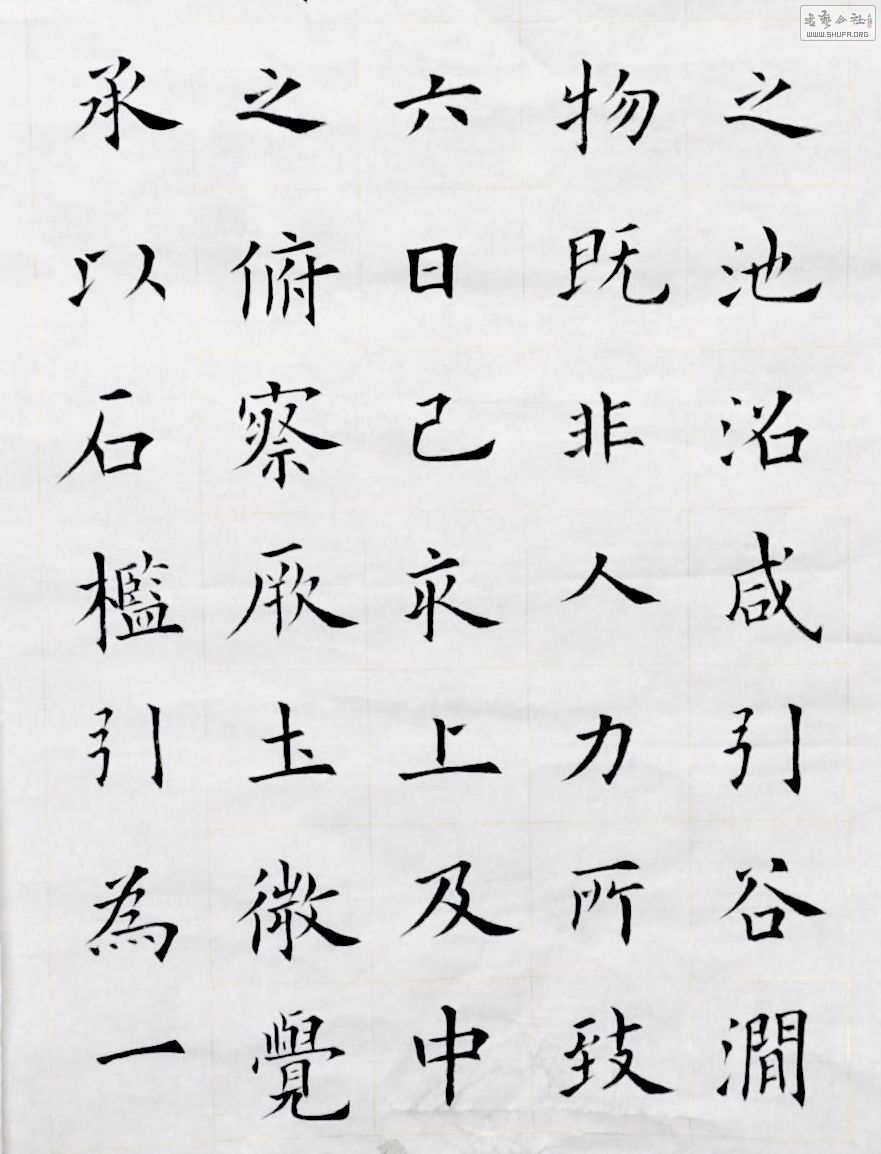 之池沼咸引谷澗
物既非人力所致
六日己亥上及中
之俯察厥圡微覺
承以石檻引為一
書藝公社
WWW.SHUFA.ORG